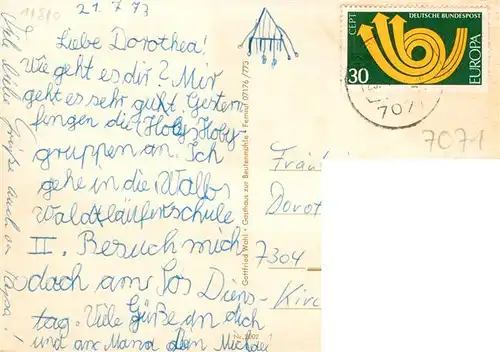 21.7.73
Liebe Dorothea!
Wie geht es dir? Mir
geht es sehr gut. Gestern
fingen die Hoby-Hoby
gruppen an. Ich
gehe in die
Waldläuferschule
II. Besuch mich
doch am
Diens-
tag. Viele Güße an dich
und an Mama Dein Michael
Viele Grüße auch an Papa!
Gottfried Wahl · Gasthaus zur Beutenmühle · Fernruf 07176/773
CEPT
DEUTSCHE BUNDESPOST
EUROPA
30
707
7071
Fräu
Dorot
7304
Kirc